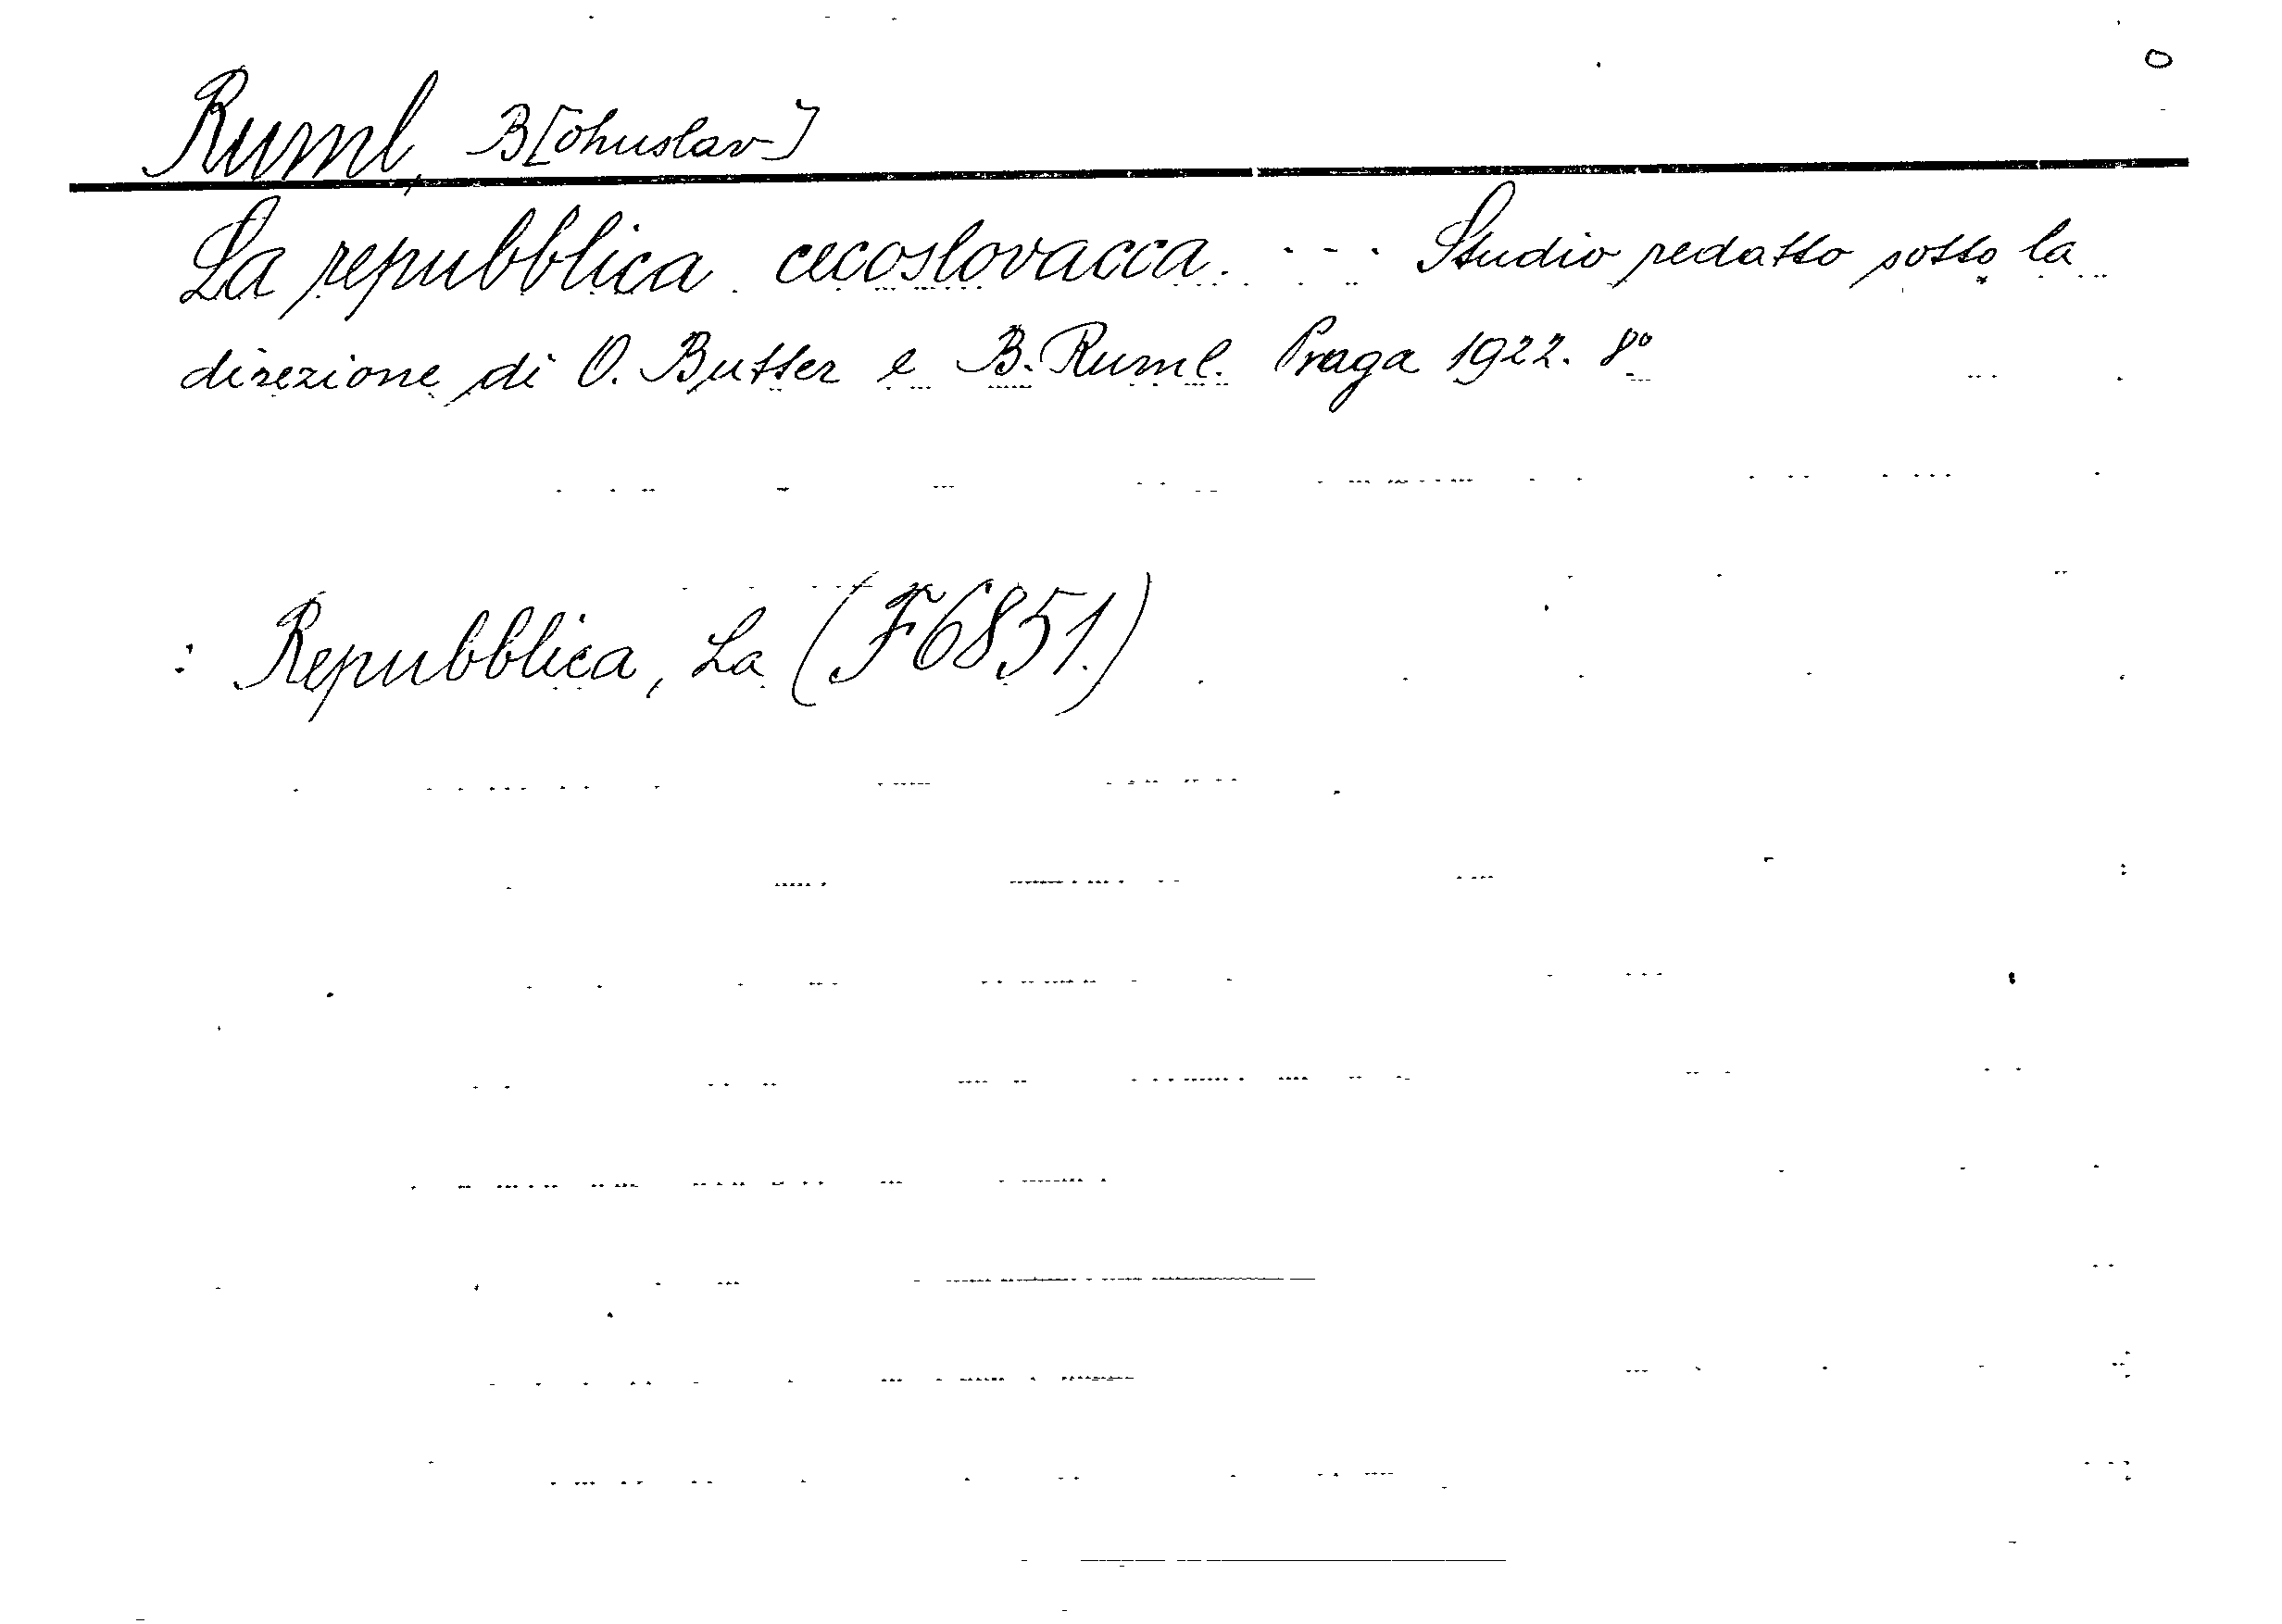 Ruml, B[ohuslav]
La repubblica cecoslovacca. - - - Studio redatto sotto la
direzione di O. Butter e B. Ruml. Praga 1922. 8º
: Repubblica, La (F6851.)